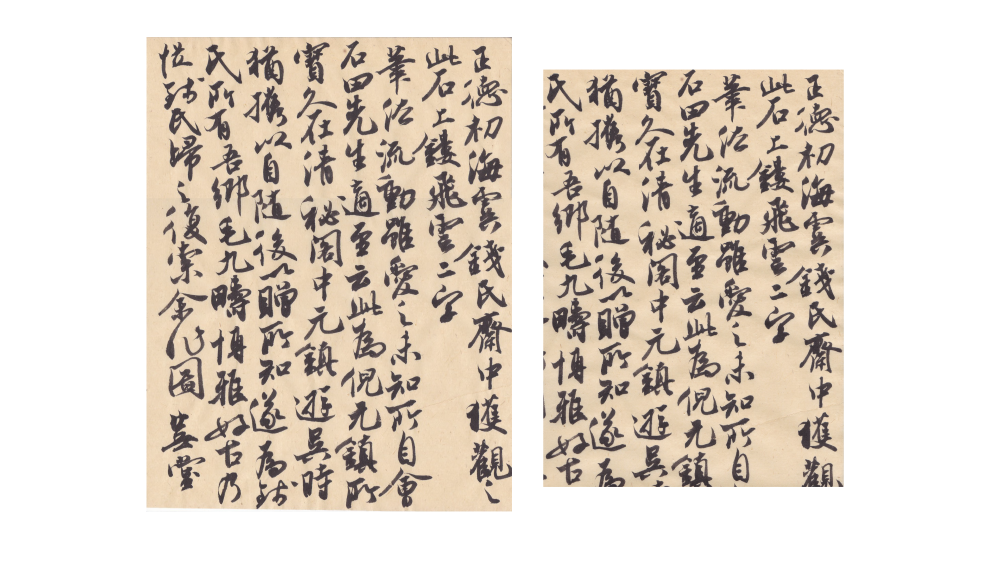 正德初海虞錢氏齋中獲觀之
此石上鏤飛雲二字
筆法流動雖愛之未知所自會
石田先生適至云此為倪元鎮所
寶久在清祕閣中元鎮遊吳時
猶攜以自隨後以贈所知遂為錢
氏所有吾鄉毛九疇博雅好古乃
從錢氏歸之復索余作圖
正德初海虞錢氏齋中獲觀
此石上鏤飛雲二字
筆法流動雖愛之未知所自
石田先生適至云此為倪元鎮
寶久在清祕閣中元鎮遊吳
猶攜以自隨後以贈所知遂為
氏所有吾鄉毛九疇博雅好古